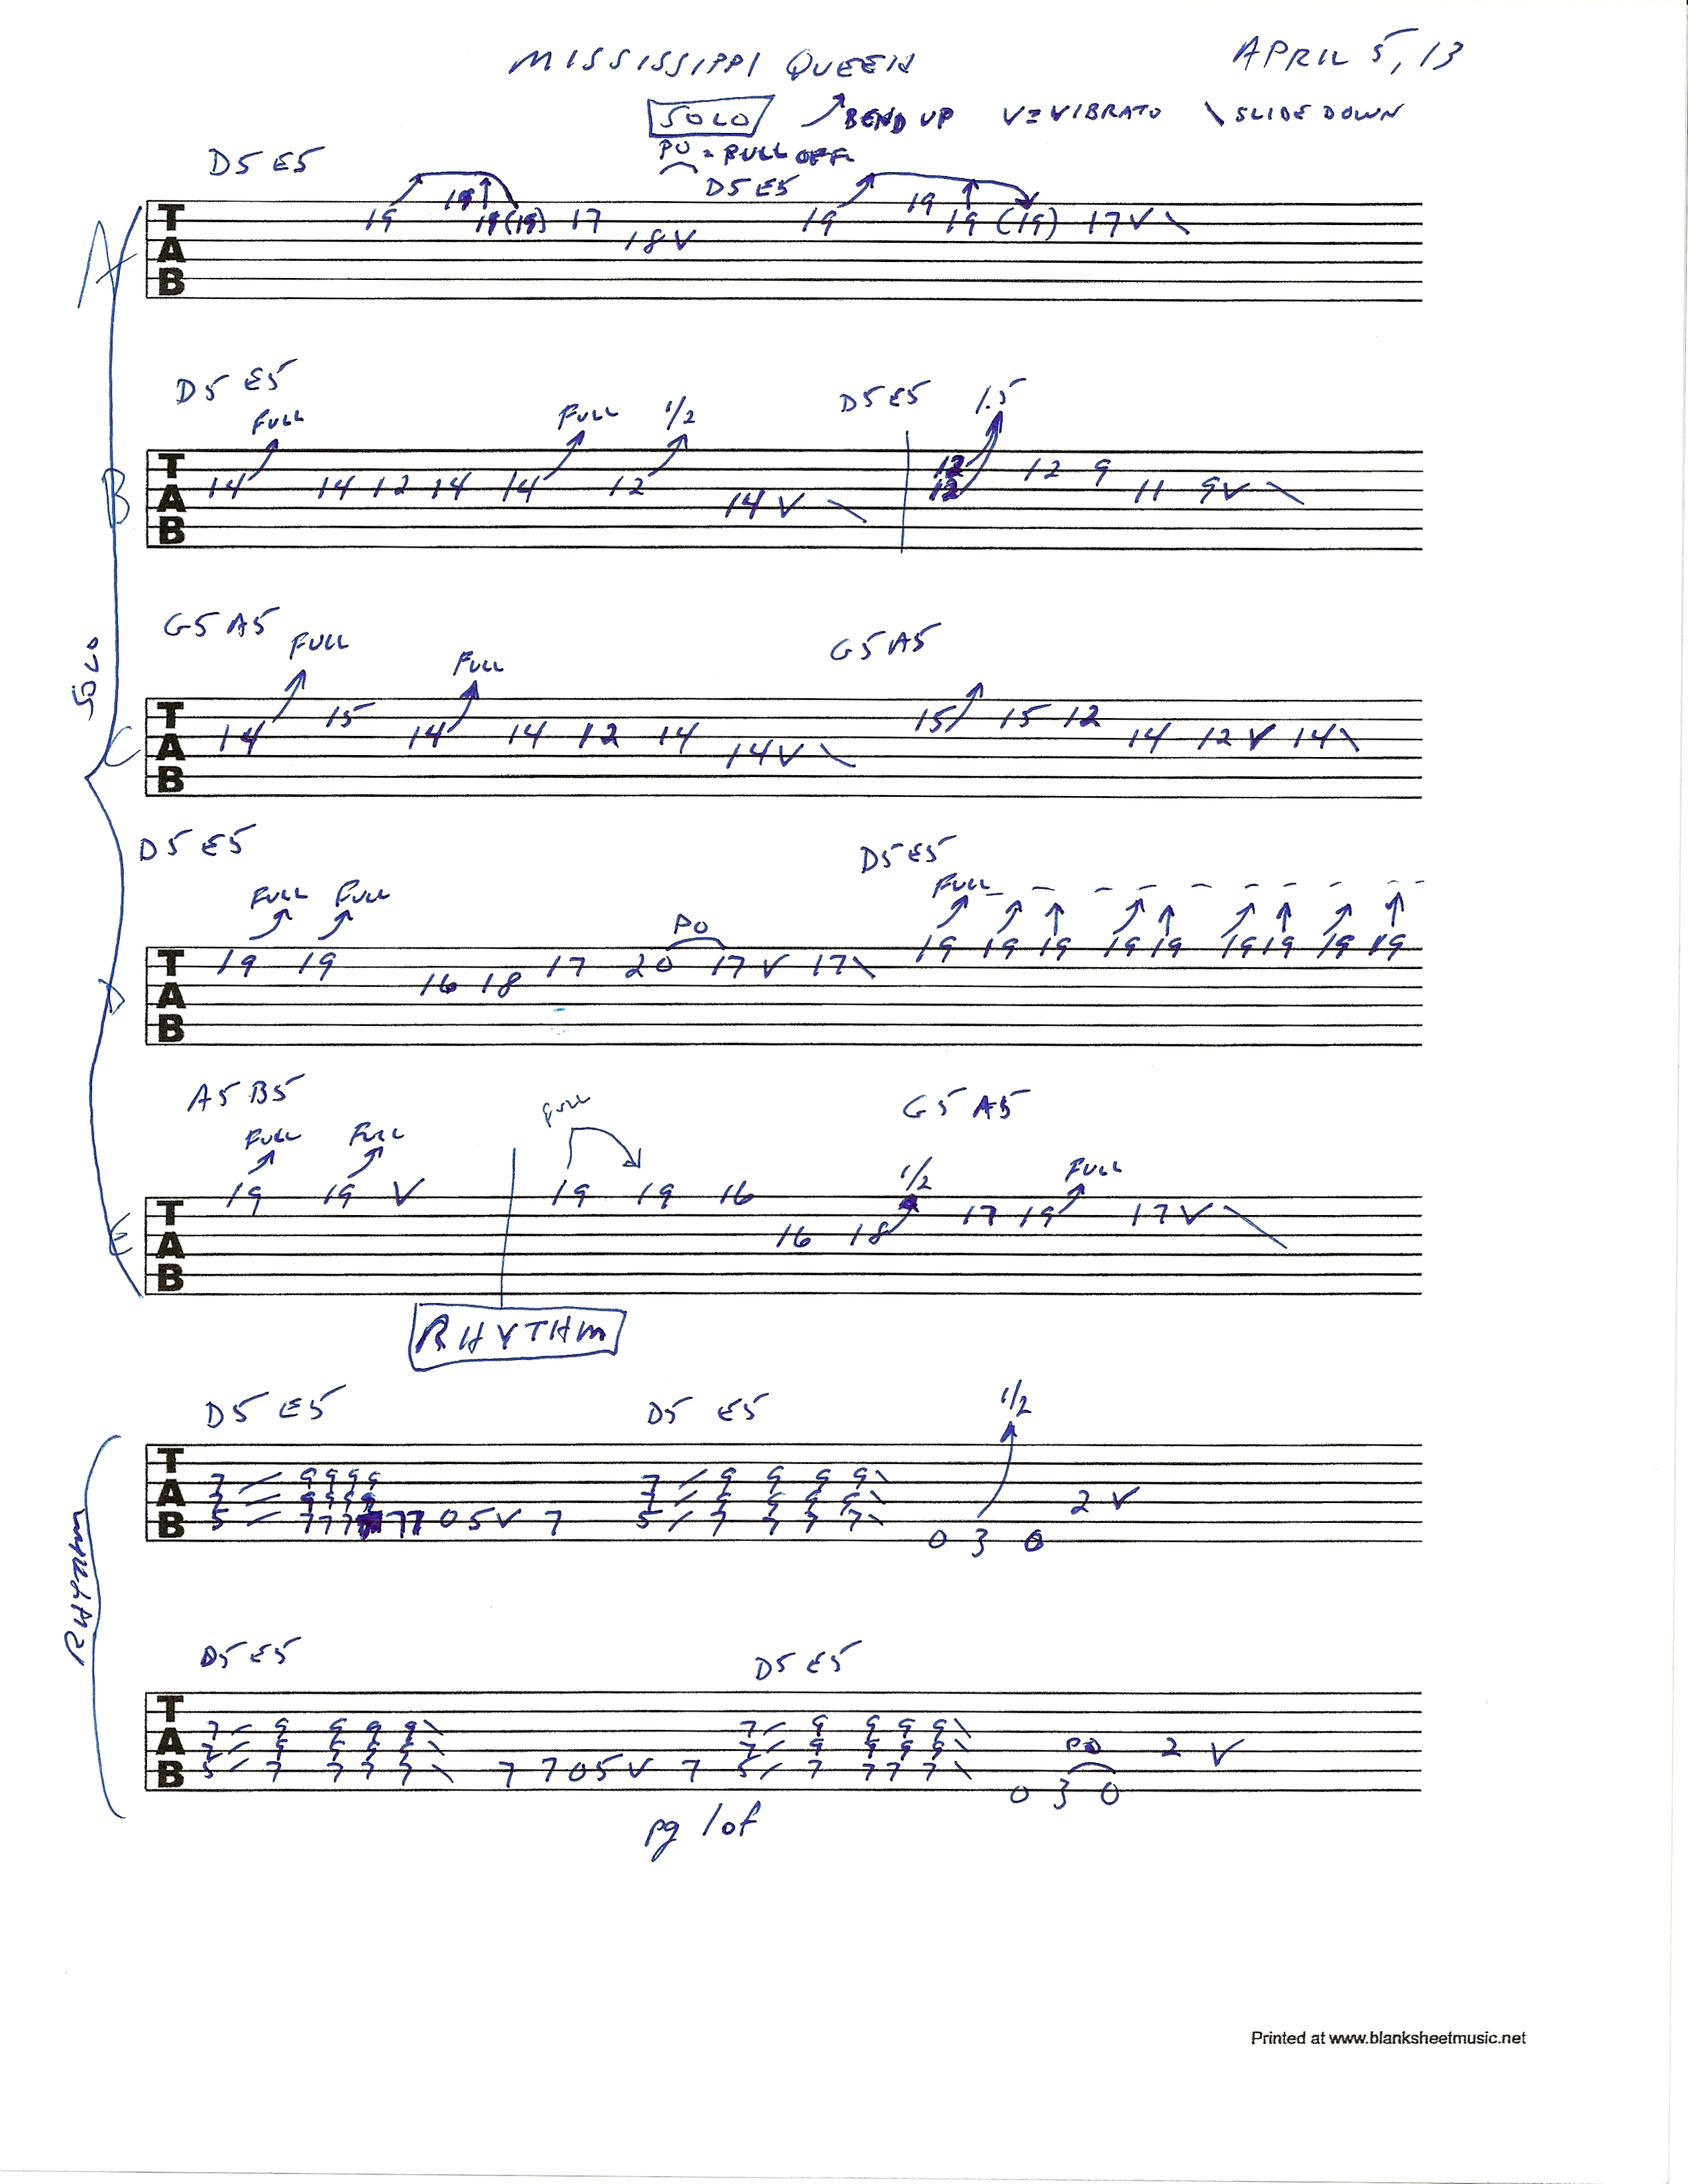 MISSISSIPPI QUEEN APRIL 5, 13
SOLO BEND UP V=VIBRATO \ SLIDE DOWN
PO = PULL OFF
D5 E5 D5 E5
19 19 19 (19) 17 18 V 19 19 19 (19) 17 V \
A
TAB
D5 E5 D5 E5 1.5
FULL FULL 1/2
14 14 12 14 14 12 14 V \ 12 12 9 11 9 V \
12
B
TAB
G5 A5 G5 A5
FULL FULL
14 15 14 14 12 14 14 V \ 15 15 12 14 12 V 14 \
C
TAB
SOLO
D5 E5 D5 E5
FULL FULL FULL _ _ _ _ _ _ _ _ _ _
PO
19 19 16 18 17 20 17 V 17 \ 19 19 19 19 19 19 19 19 19
D
TAB
A5 B5 G5 A5
FULL FULL FULL 1/2 FULL
19 19 V 19 19 16 16 18 17 19 17 V \
E
TAB
RHYTHM
D5 E5 D5 E5 1/2
7 / 9 9 9 9 7 / 9 9 9 9 \
7 / 9 9 9 9 7 / 9 9 9 9 \ 2 V
5 / 7 7 7 7 7 0 5 V 7 5 / 7 7 7 7 \
0 3 0
TAB
RHYTHM
D5 E5 D5 E5
7 / 9 9 9 9 \ 7 / 9 9 9 9 \
7 / 9 9 9 9 \ 7 / 9 9 9 9 \ PO 2 V
5 / 7 7 7 7 \ 7 7 0 5 V 7 5 / 7 7 7 7 \
0 3 0
TAB
pg 1 of
Printed at www.blanksheetmusic.net